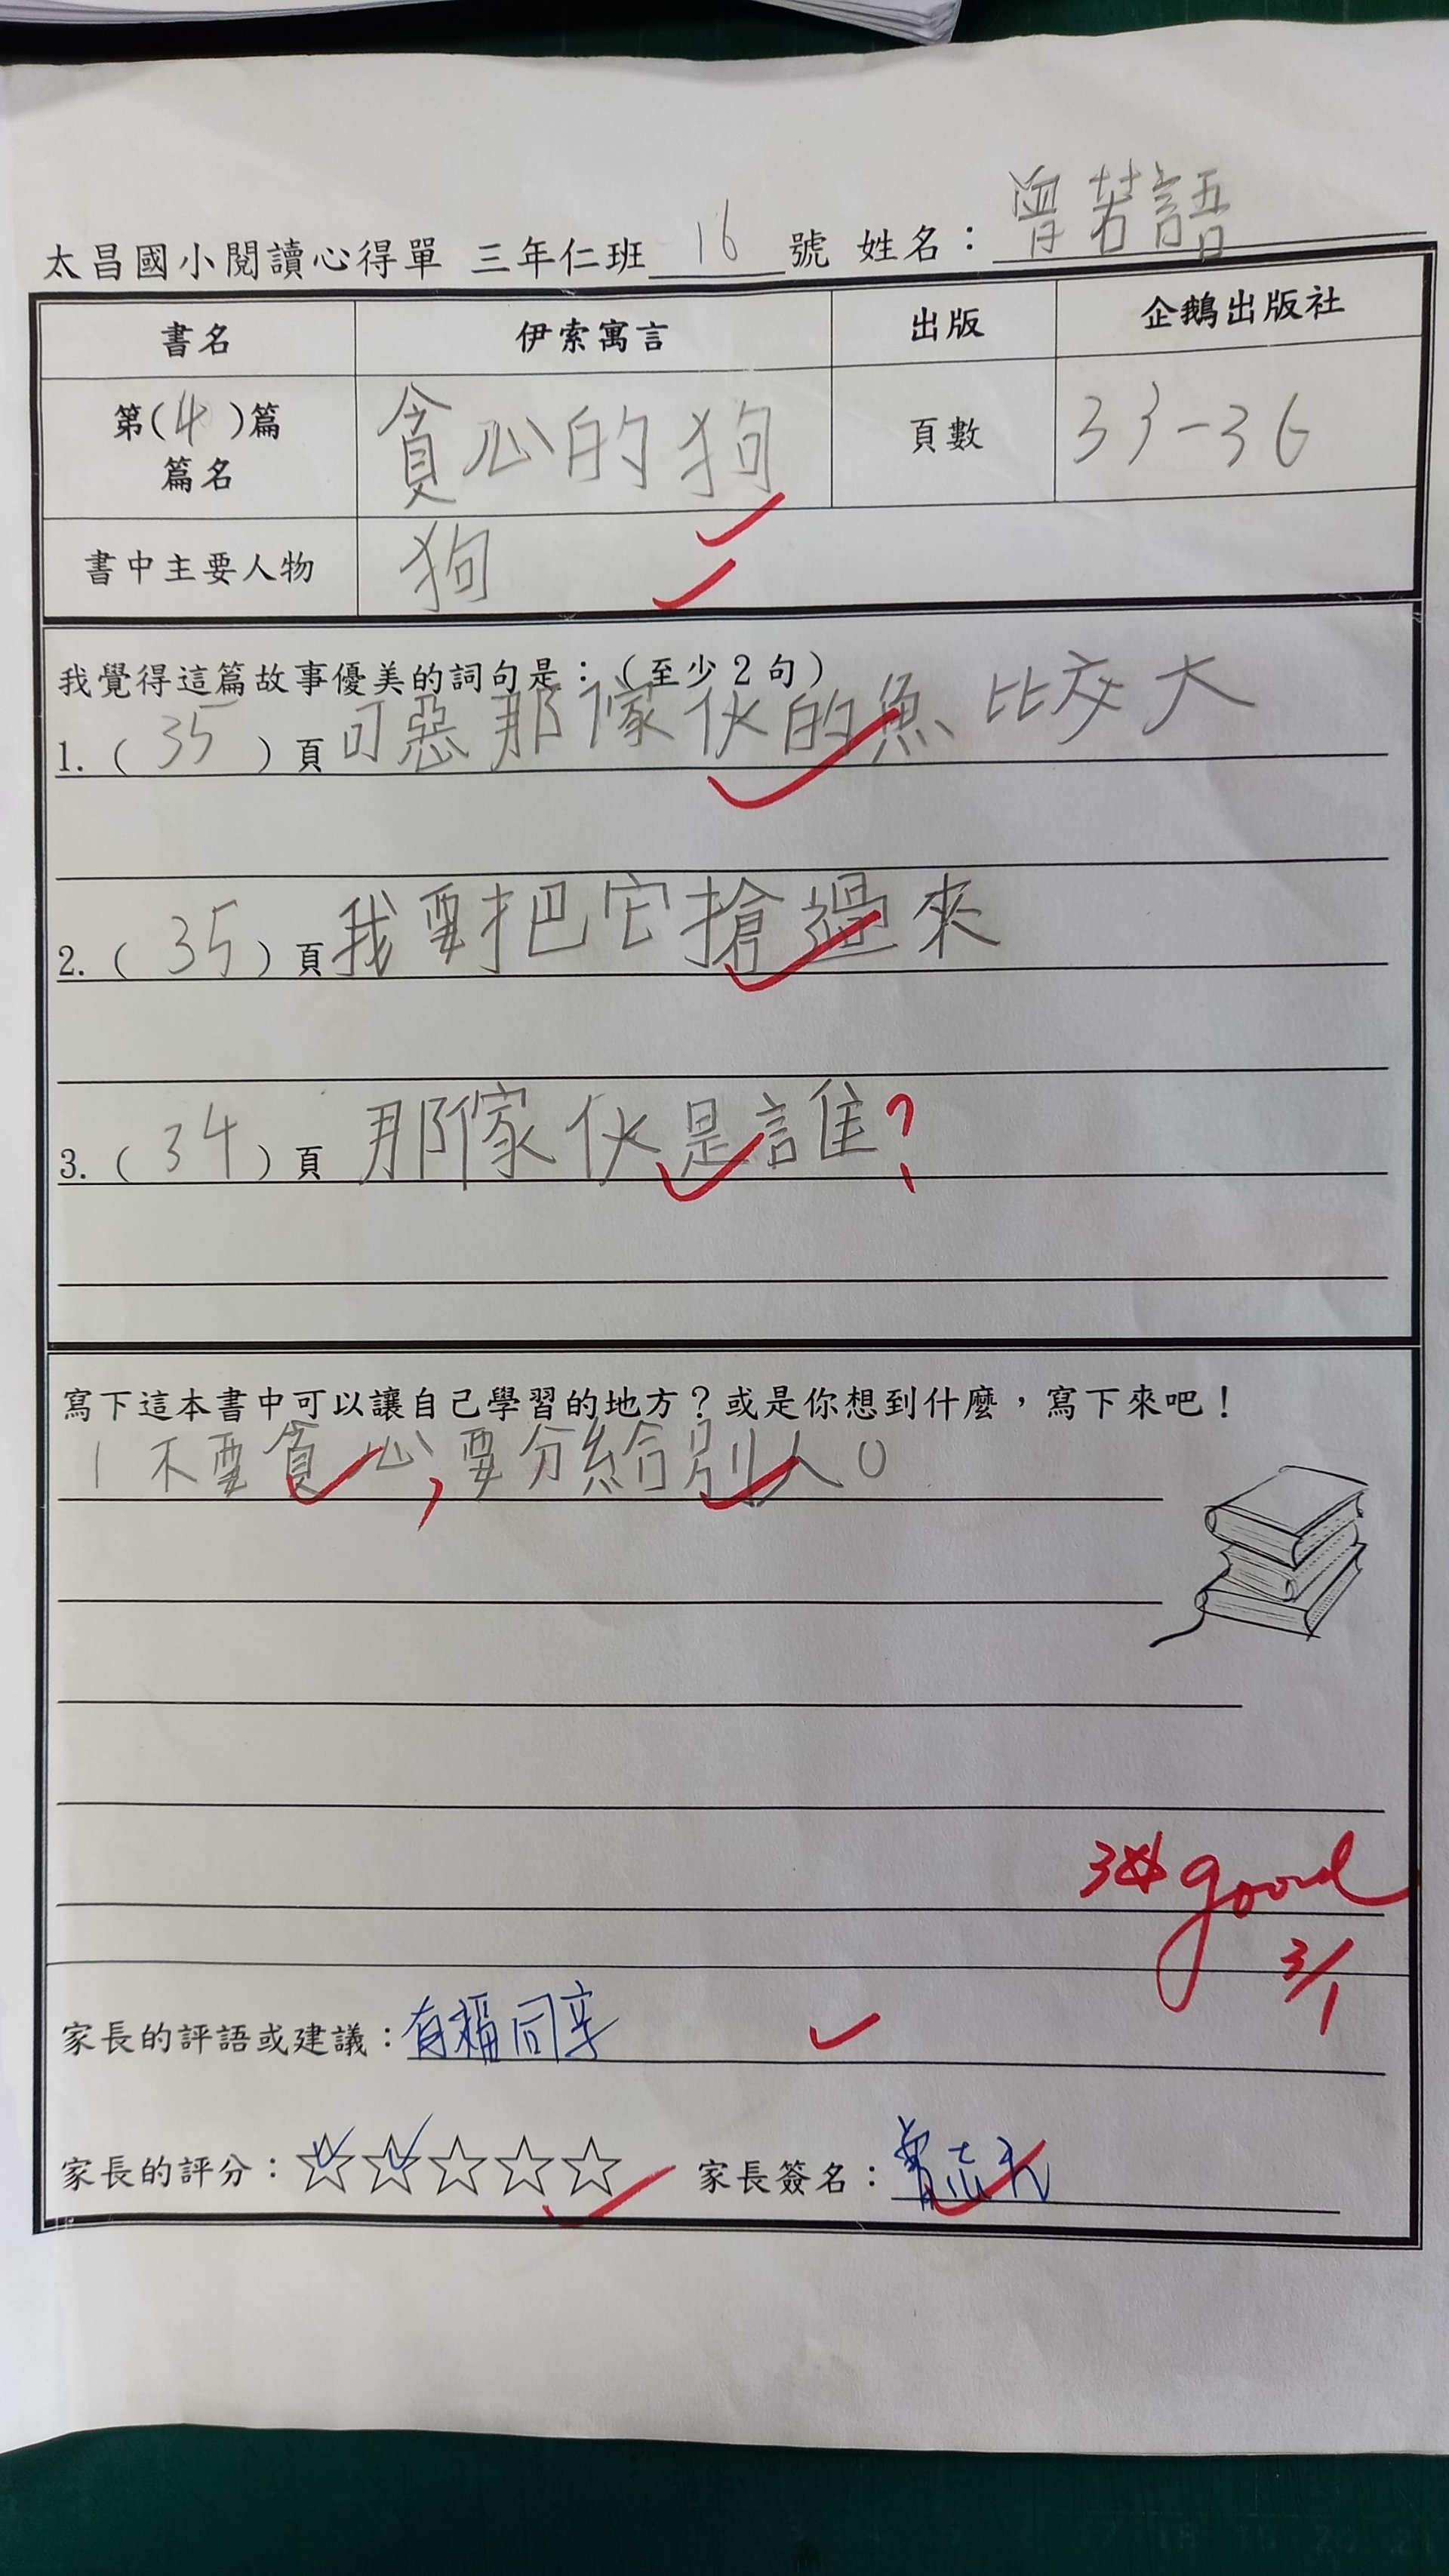 太昌國小閱讀心得單 三年仁班 16 號 姓名：曾若語
書名 伊索寓言 出版 企鵝出版社
第(4)篇
篇名 貪心的狗 頁數 33-36
書中主要人物 狗
我覺得這篇故事優美的詞句是：（至少2句）
1.（35）頁可惡那傢伙的魚比較大
2.（35）頁我要把它搶過來
3.（34）頁 那傢伙是誰?
寫下這本書中可以讓自己學習的地方？或是你想到什麼，寫下來吧！
1 不要貪心,要分給別人。
3☆ good
3/1
家長的評語或建議：有福同享
家長的評分：☆☆☆☆☆ 家長簽名：曾志